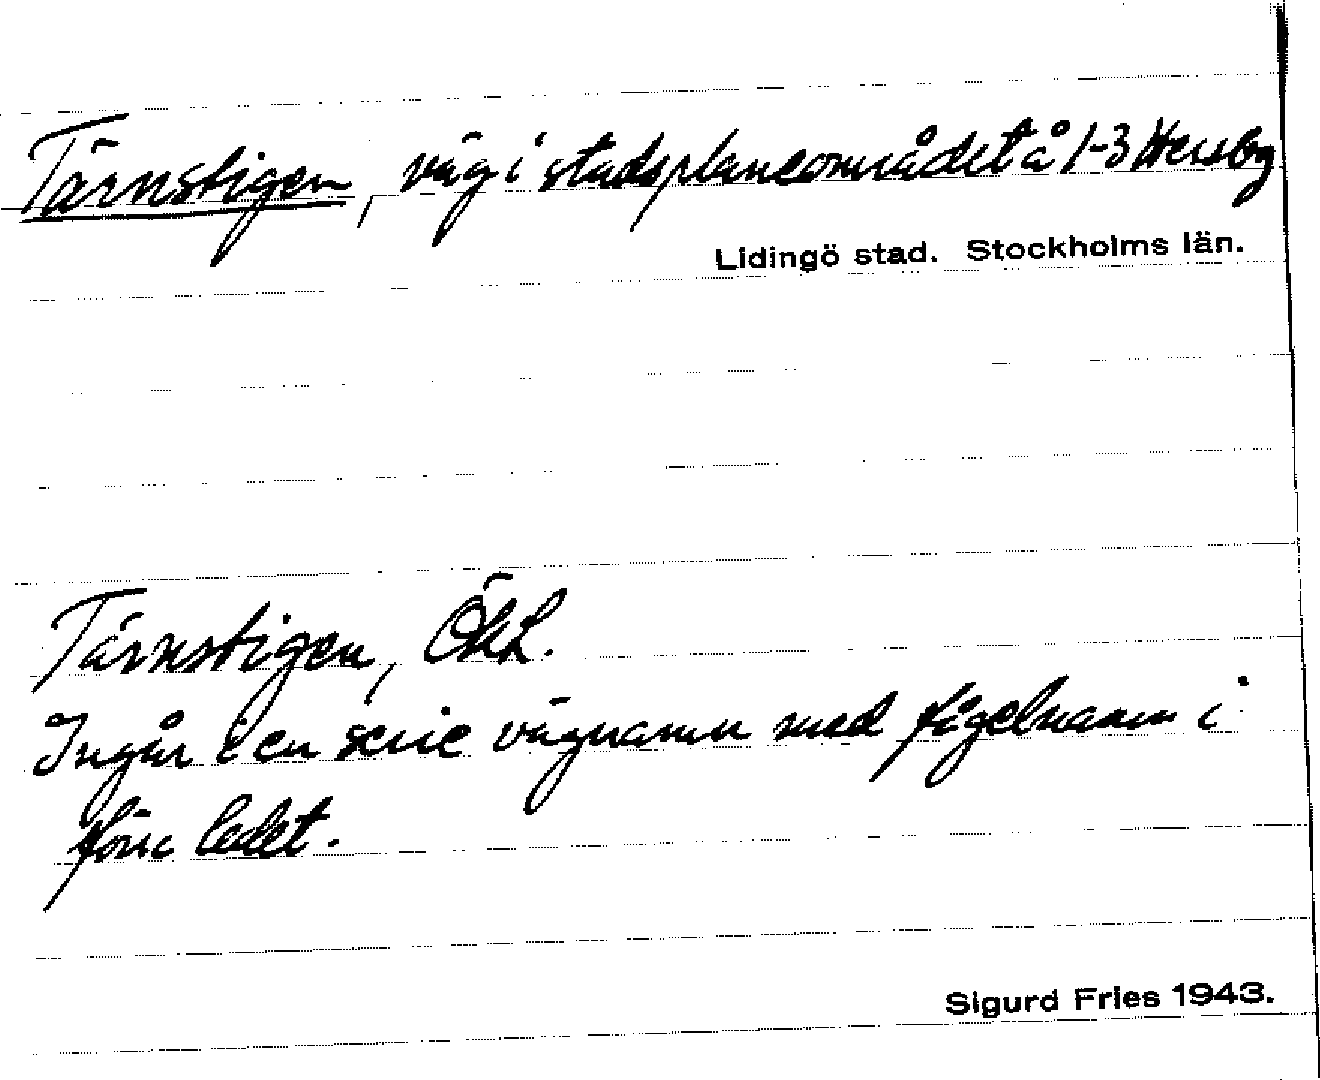 Tärnstigen, väg i stadsplaneområdet å 1-3 Hersby
Lidingö stad. Stockholms län.
Tärnstigen, ÖkL.
Ingår i en serie vägnamn med fågelnamn i
förra ledet.
Sigurd Fries 1943.